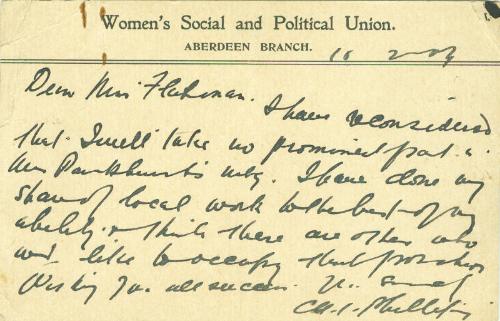 Women's Social and Political Union.
ABERDEEN BRANCH.
Dear Miss Flatman.
I have reconsidered
that I will take no prominent part in
Mrs Pankhurst's mtg. I have done my
share of local work to the best of my
ability & think there are others who
wd. like to occupy that position
Wishing you all success. Yrs.